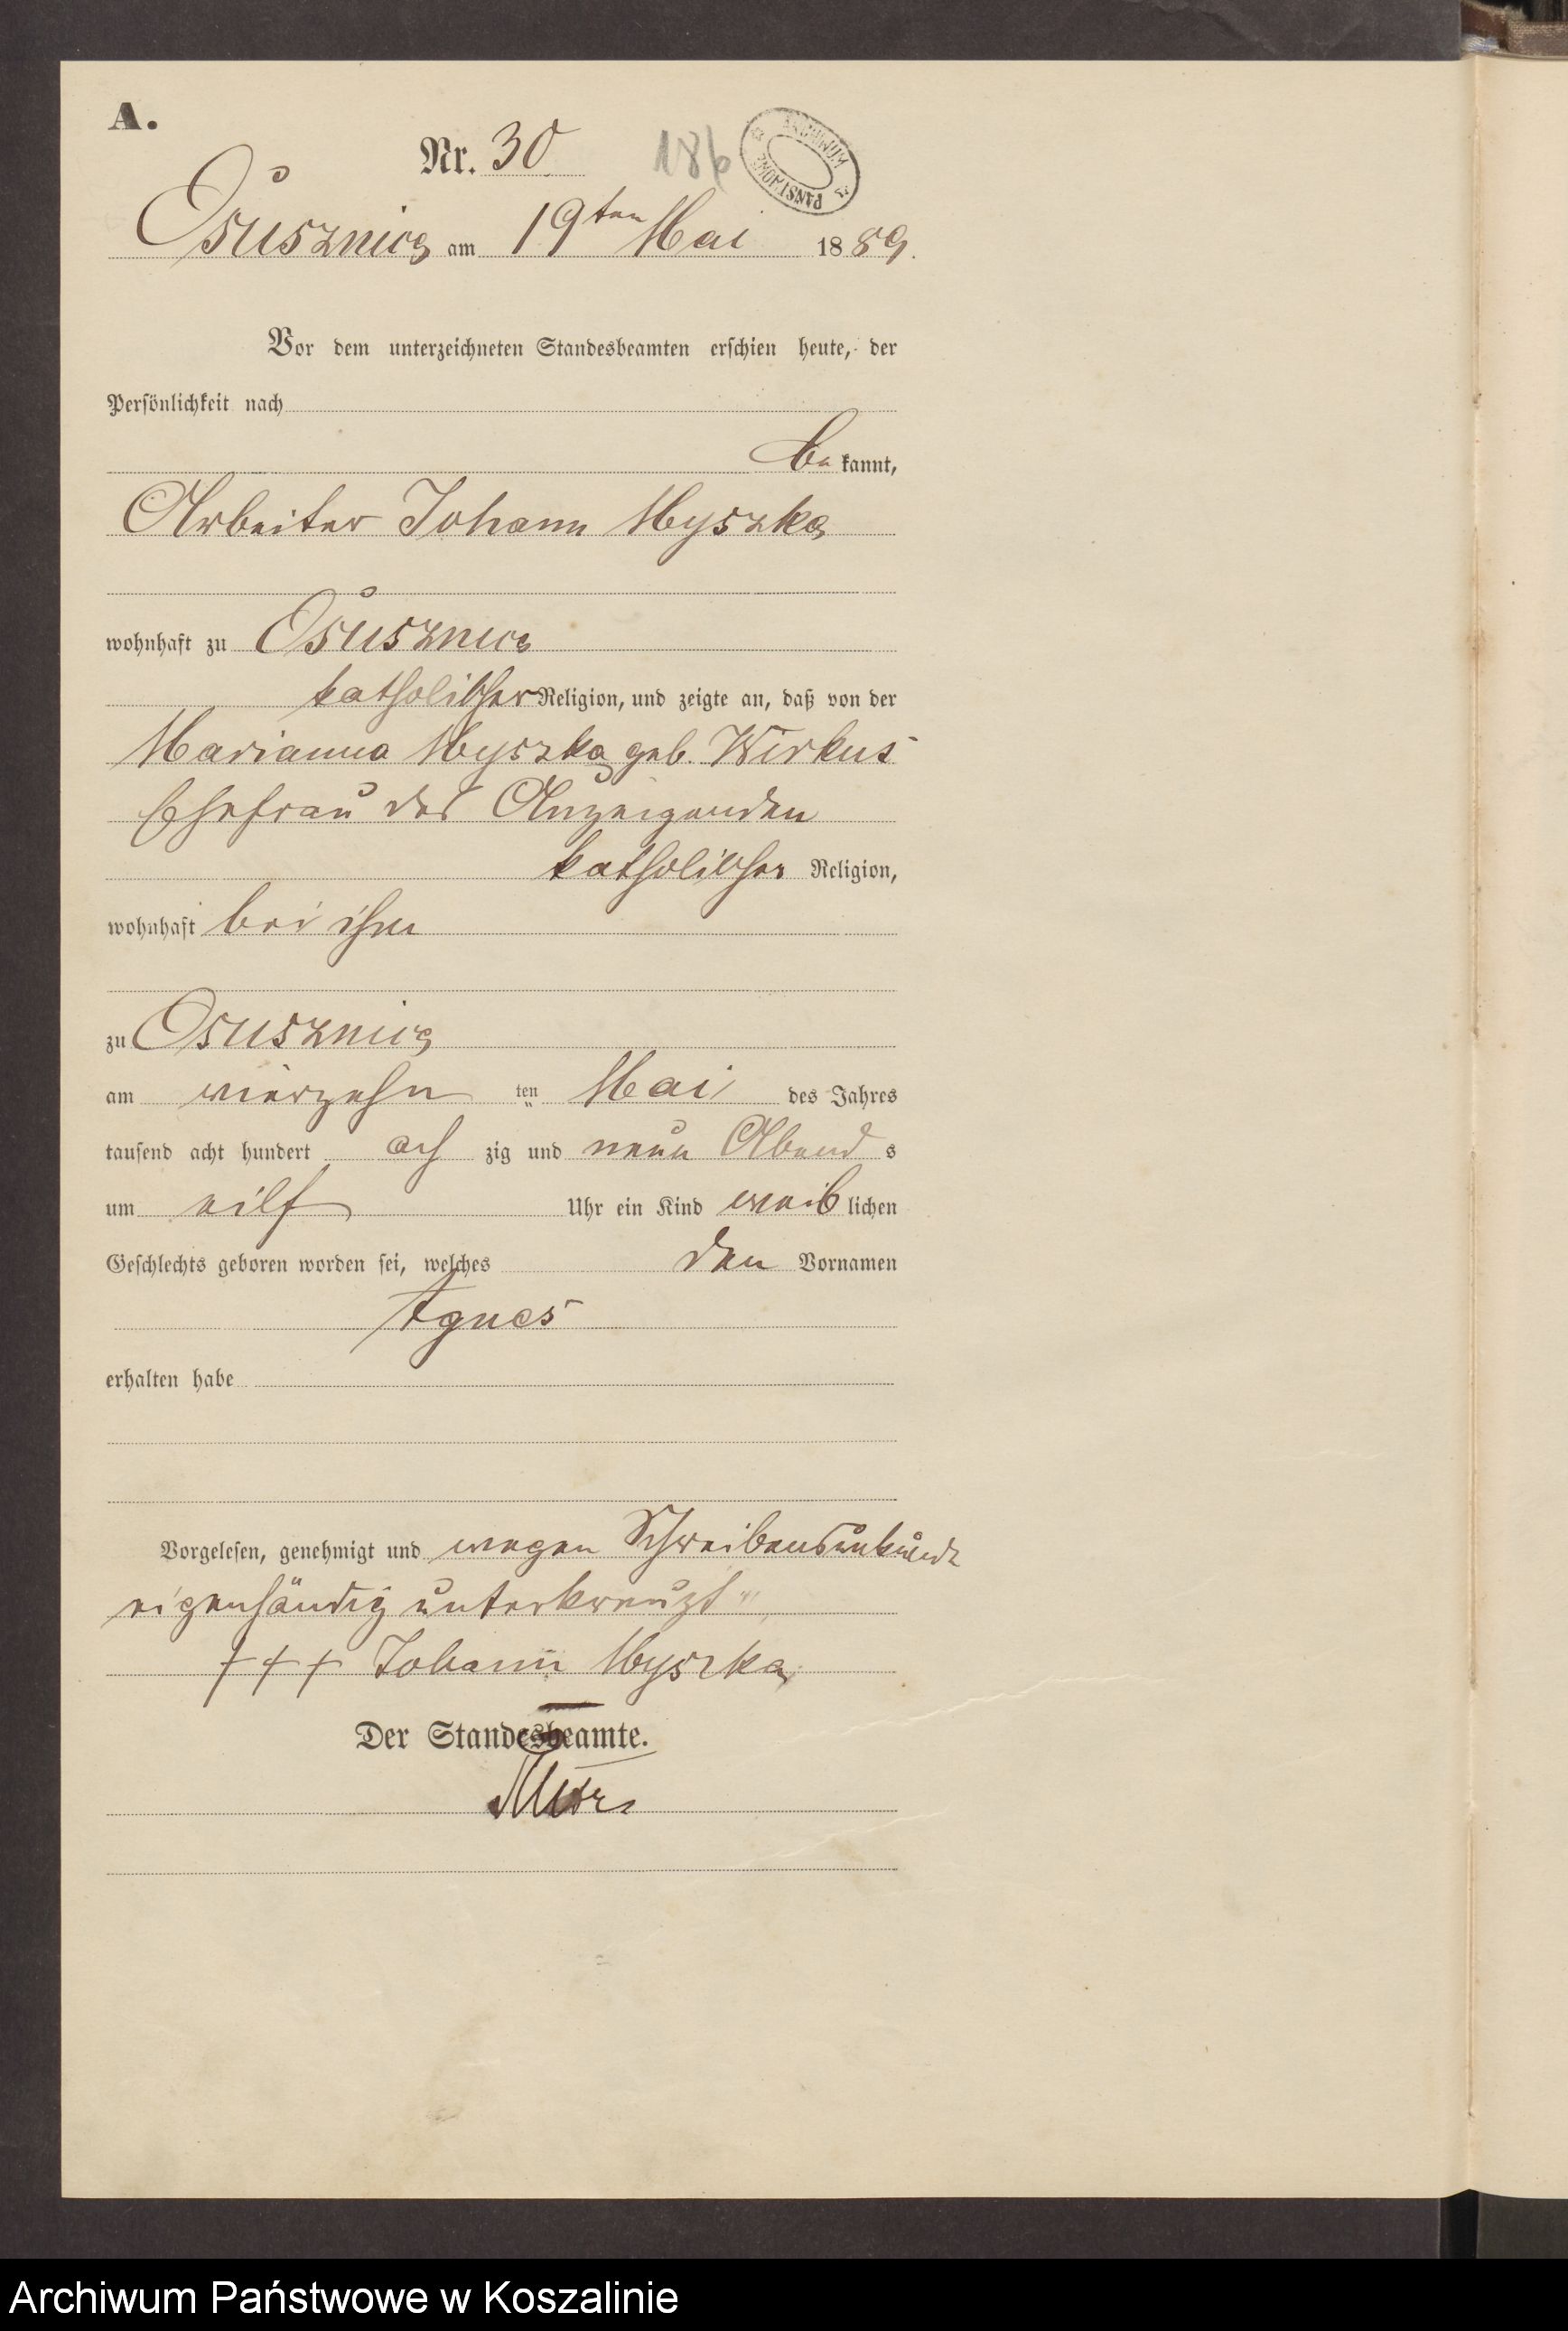 A.
Nr. 30
186
ARCHIWUM PAŃSTWOWE
Osusznica am 19ten Mai 1889.
Vor dem unterzeichneten Standesbeamten erschien heute, der
Persönlichkeit nach
be kannt,
Arbeiter Johann Myszka
wohnhaft zu Osusznica
katholischer Religion, und zeigte an, daß von der
Marianna Myszka geb. Wirkus
Ehefrau des Anzeigenden
katholischer Religion,
wohnhaft bei ihm
zu Osusznica
am vierzehn ten Mai des Jahres
tausend acht hundert ach zig und neun Abend s
um eilf Uhr ein Kind weib lichen
Geschlechts geboren worden sei, welches den Vornamen
Agnes
erhalten habe
Vorgelesen, genehmigt und wegen Schreibensunkunde
eigenhändig unterkreuzt
+++ Johann Myszka
Der Standesbeamte.
Archiwum Państwowe w Koszalinie